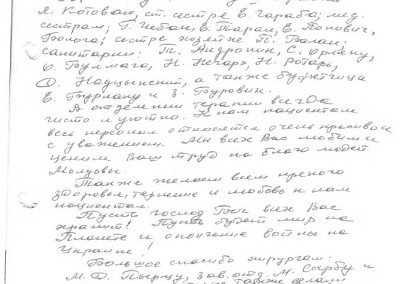 Я. Котован, ст. сестре В. Гараба; мед.
сестрам: Т. Чебан, В. Таран, Е. Попович,
сестре хозяйке
санитарки: Т. Андроник, С.
Н. Негарэ, Н. Ротарь,
О. Надцынский, а также буфетчица
Е. Бурлаку и З. Буровик.
В отделении терапии всегда
чисто и уютно. К нам пациентам
весь персонал относится очень красиво и
с уважением. Мы всех Вас любим и
ценим Ваш труд на благо людей
Молдовы.
Также желаем всем крепкого
здоровья, терпение и любовь к нам
пациентам.
Пусть господ Бог всех Вас
хранит! Пусть будет мир на
Планете и окончание войны на
Украине!
Большое спасибо хирургам:
М. Д. Пырцу, зав. отд. М. Сырбу и
также